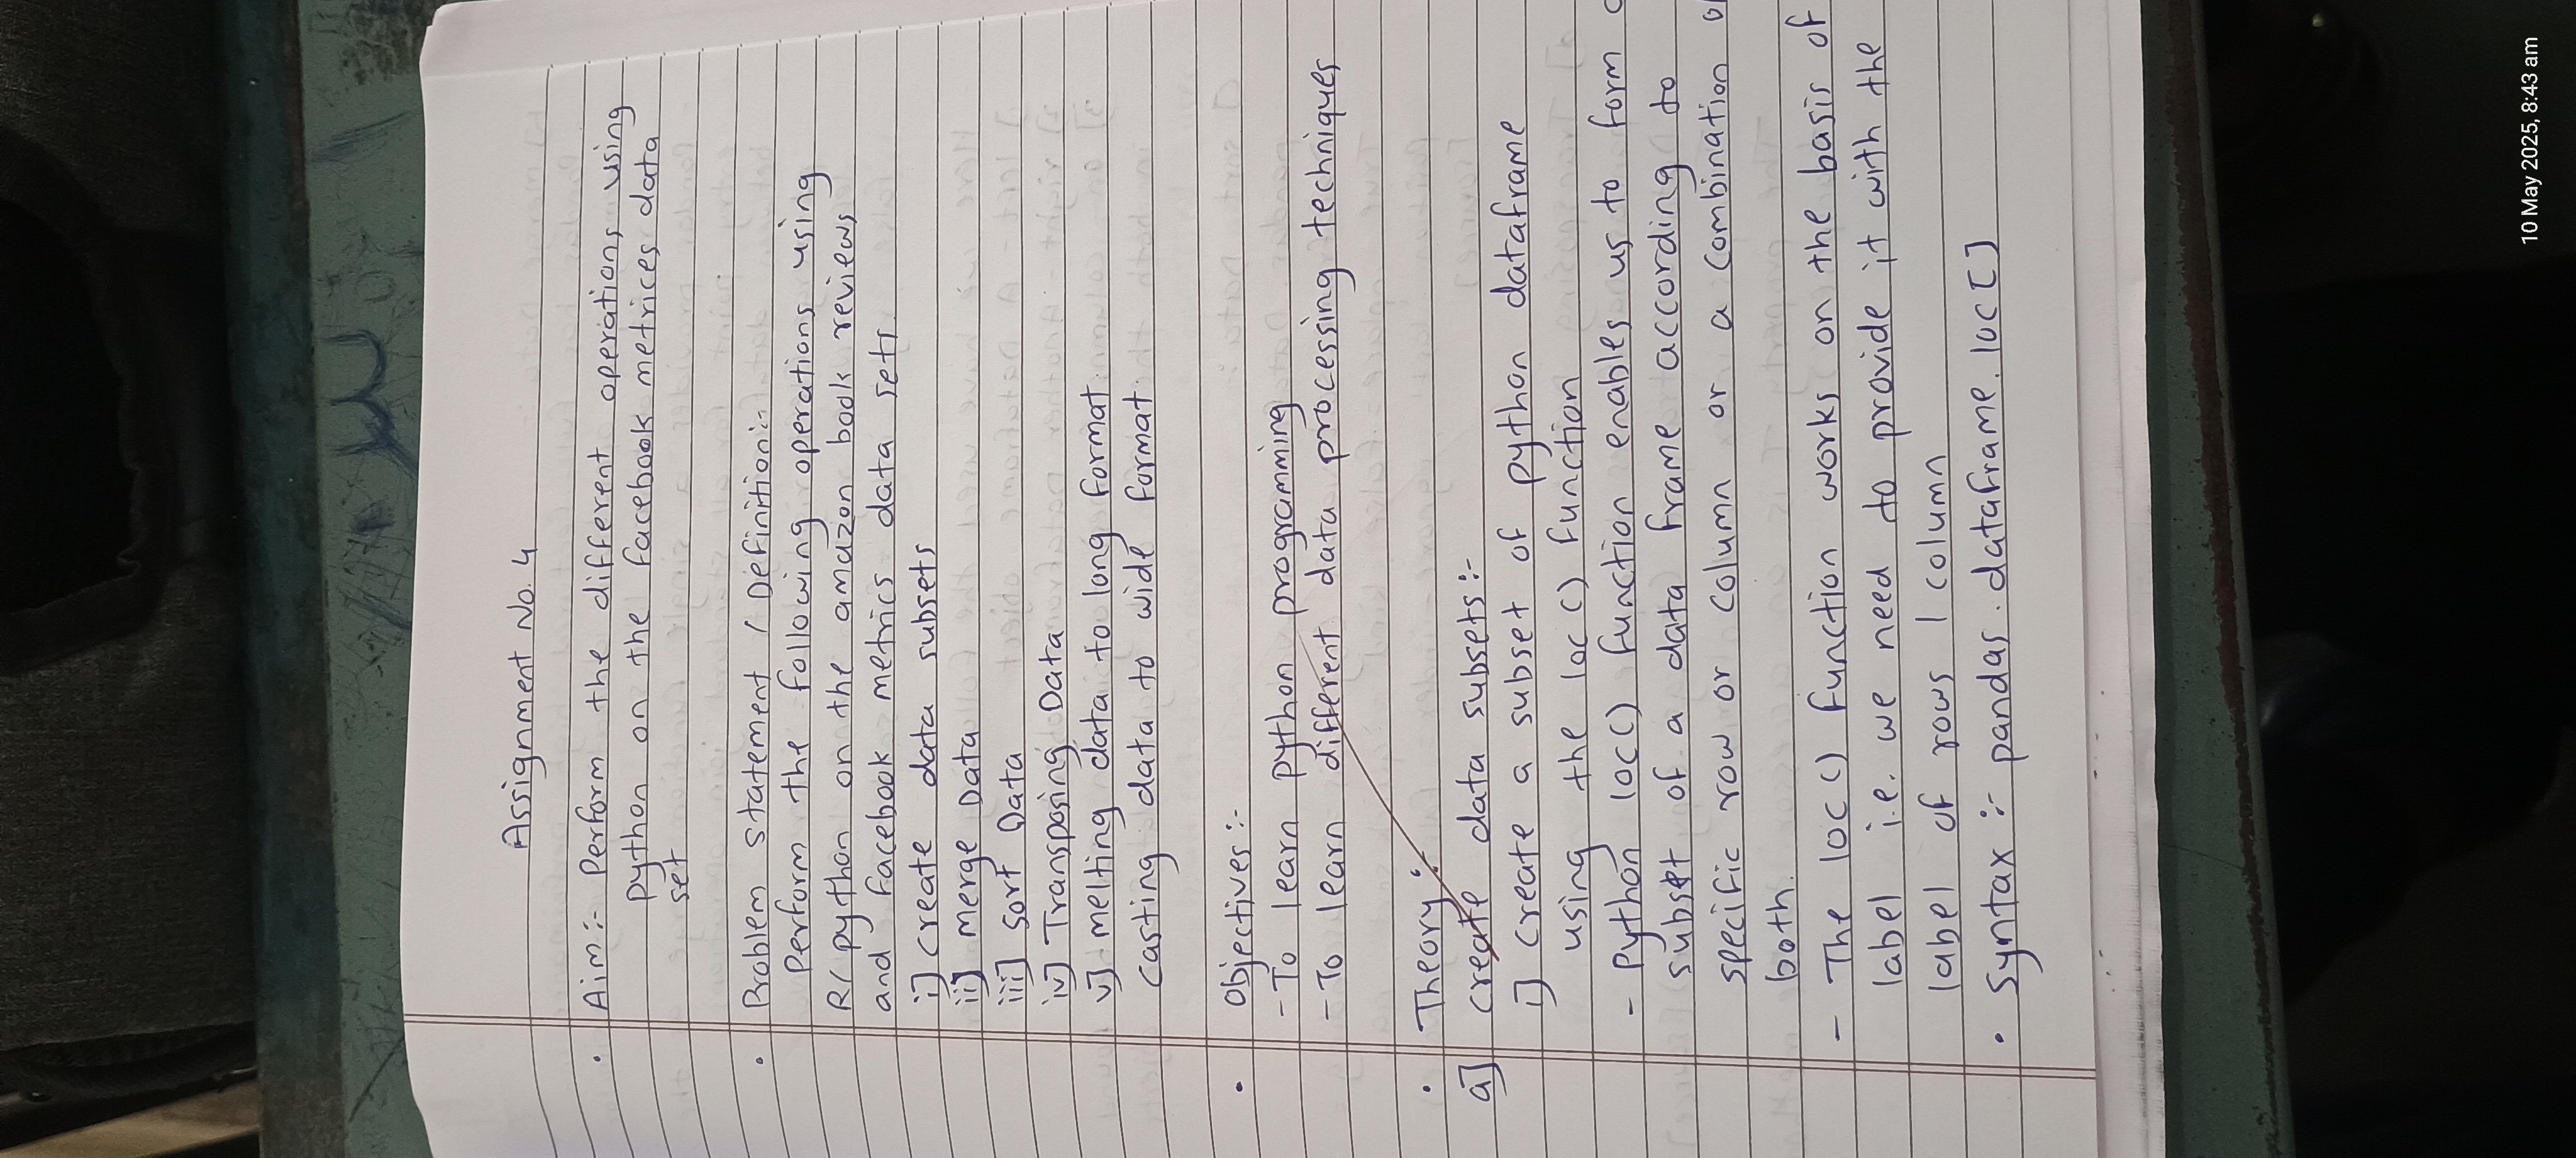 Assignment No. 4
• Aim :- Perform the different operations using
python on the facebook metrices data
set
• Problem statement / Definition :-
Perform the following operations using
R/ python on the amazon book reviews
and facebook metrics data sets.
i] create data subsets
ii] merge Data
iii] sort Data
iv] Transposing Data
v] melting data to long format.
casting data to wide format.
• Objectives :-
- To learn python programming
- To learn different data processing techniques
• Theory :-
a] create data subsets :-
i] create a subset of python dataframe
using the loc () function
- Python loc() function enables us to form
subset of a data frame according to
specific row or column or a combination
both.
- The loc () function works on the basis of
label i.e. we need to provide it with the
label of rows / column
• Syntax :- pandas . dataframe. loc [ ]
10 May 2025, 8:43 am